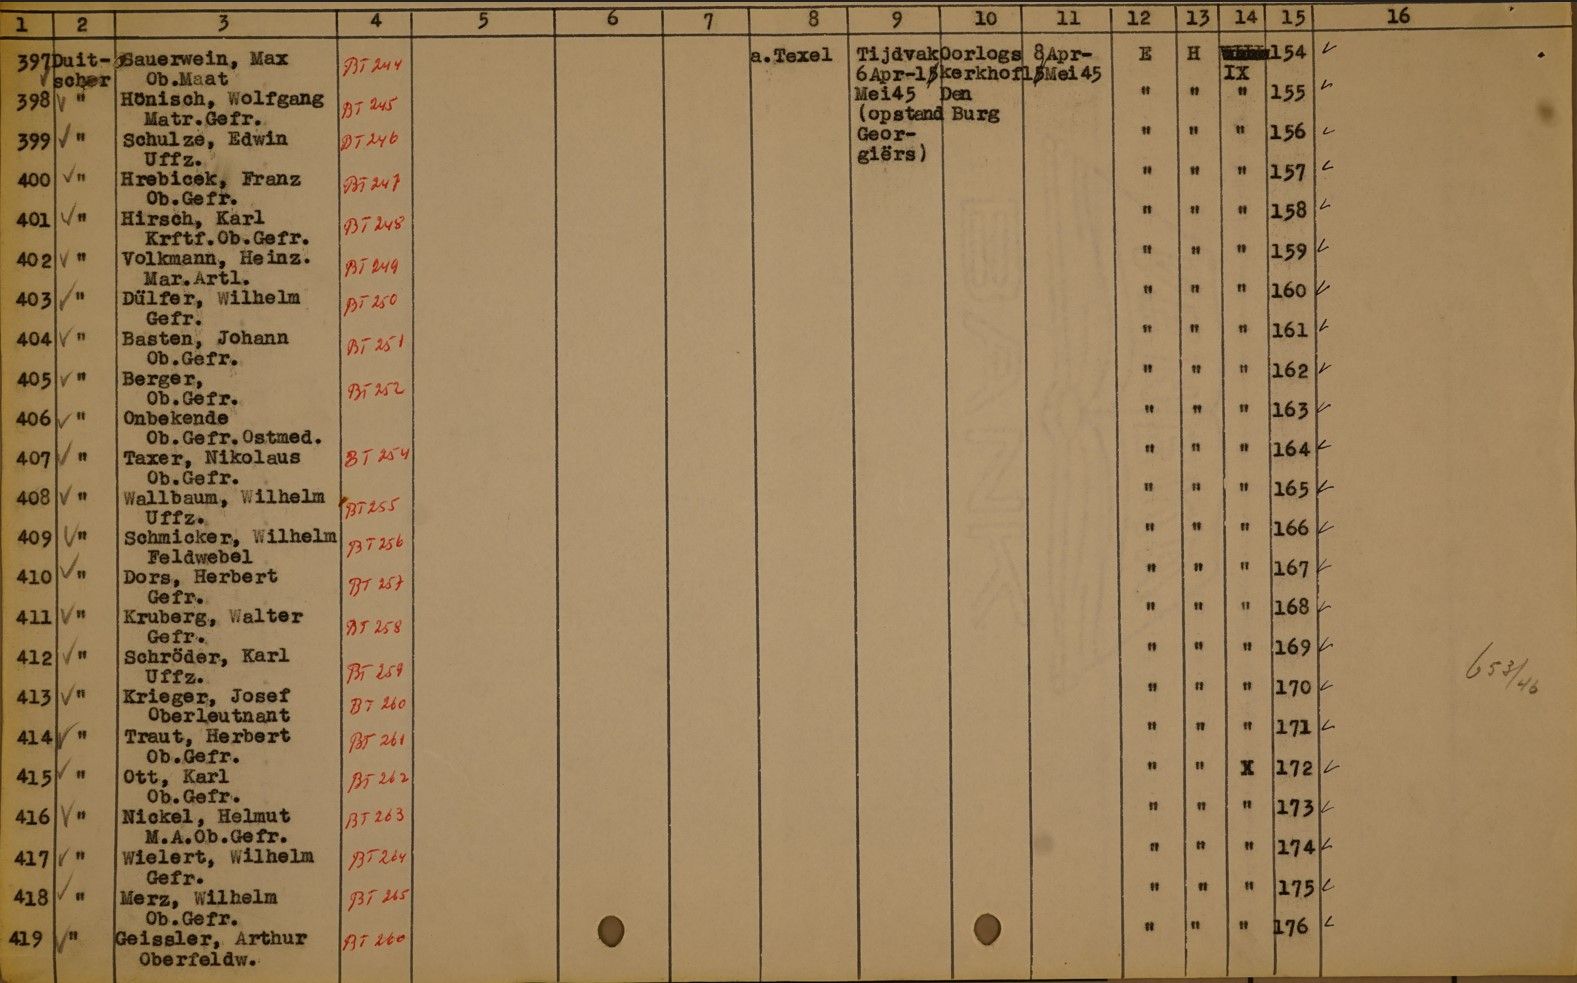 1 2 3 4 5 6 7 8 9 10 11 12 13 14 15 16
397 Duit- Sauerwein, Max BT 244 a.Texel Tijdvak Oorlogs 8Apr- E H 154 ✓
✓ scher Ob.Maat 6Apr-15 kerkhof 15Mei45 IX
398 ✓ " Hönisch, Wolfgang BT 245 Mei45 Den " " " 155 ✓
Matr.Gefr. (opstand Burg
399 ✓ " Schulze, Edwin BT 246 Geor- " " " 156 ✓
Uffz. giërs)
400 ✓ " Hrebicek, Franz BT 247 " " " 157 ✓
Ob.Gefr.
401 ✓ " Hirsch, Karl BT 248 " " " 158 ✓
Krftf.Ob.Gefr.
402 ✓ " Volkmann, Heinz. BT 249 " " " 159 ✓
Mar.Artl.
403 ✓ " Dülfer, Wilhelm BT 250 " " " 160 ✓
Gefr.
404 ✓ " Basten, Johann BT 251 " " " 161 ✓
Ob.Gefr.
405 ✓ " Berger, BT 252 " " " 162 ✓
Ob.Gefr.
406 ✓ " Onbekende " " " 163 ✓
Ob.Gefr.Ostmed.
407 ✓ " Taxer, Nikolaus BT 254 " " " 164 ✓
Ob.Gefr.
408 ✓ " Wallbaum, Wilhelm BT 255 " " " 165 ✓
Uffz.
409 ✓ " Schmicker, Wilhelm BT 256 " " " 166 ✓
Feldwebel
410 ✓ " Dors, Herbert BT 257 " " " 167 ✓
Gefr.
411 ✓ " Kruberg, Walter BT 258 " " " 168 ✓
Gefr.
412 ✓ " Schröder, Karl BT 259 " " " 169 ✓
Uffz. 653/46
413 ✓ " Krieger, Josef BT 260 " " " 170 ✓
Oberleutnant
414 ✓ " Traut, Herbert BT 261 " " " 171 ✓
Ob.Gefr.
415 ✓ " Ott, Karl BT 262 " " X 172 ✓
Ob.Gefr.
416 ✓ " Nickel, Helmut BT 263 " " " 173 ✓
M.A.Ob.Gefr.
417 ✓ " Wielert, Wilhelm BT 264 " " " 174 ✓
Gefr.
418 ✓ " Merz, Wilhelm BT 265 " " " 175 ✓
Ob.Gefr.
419 ✓ " Geissler, Arthur BT 260 " " " 176 ✓
Oberfeldw.